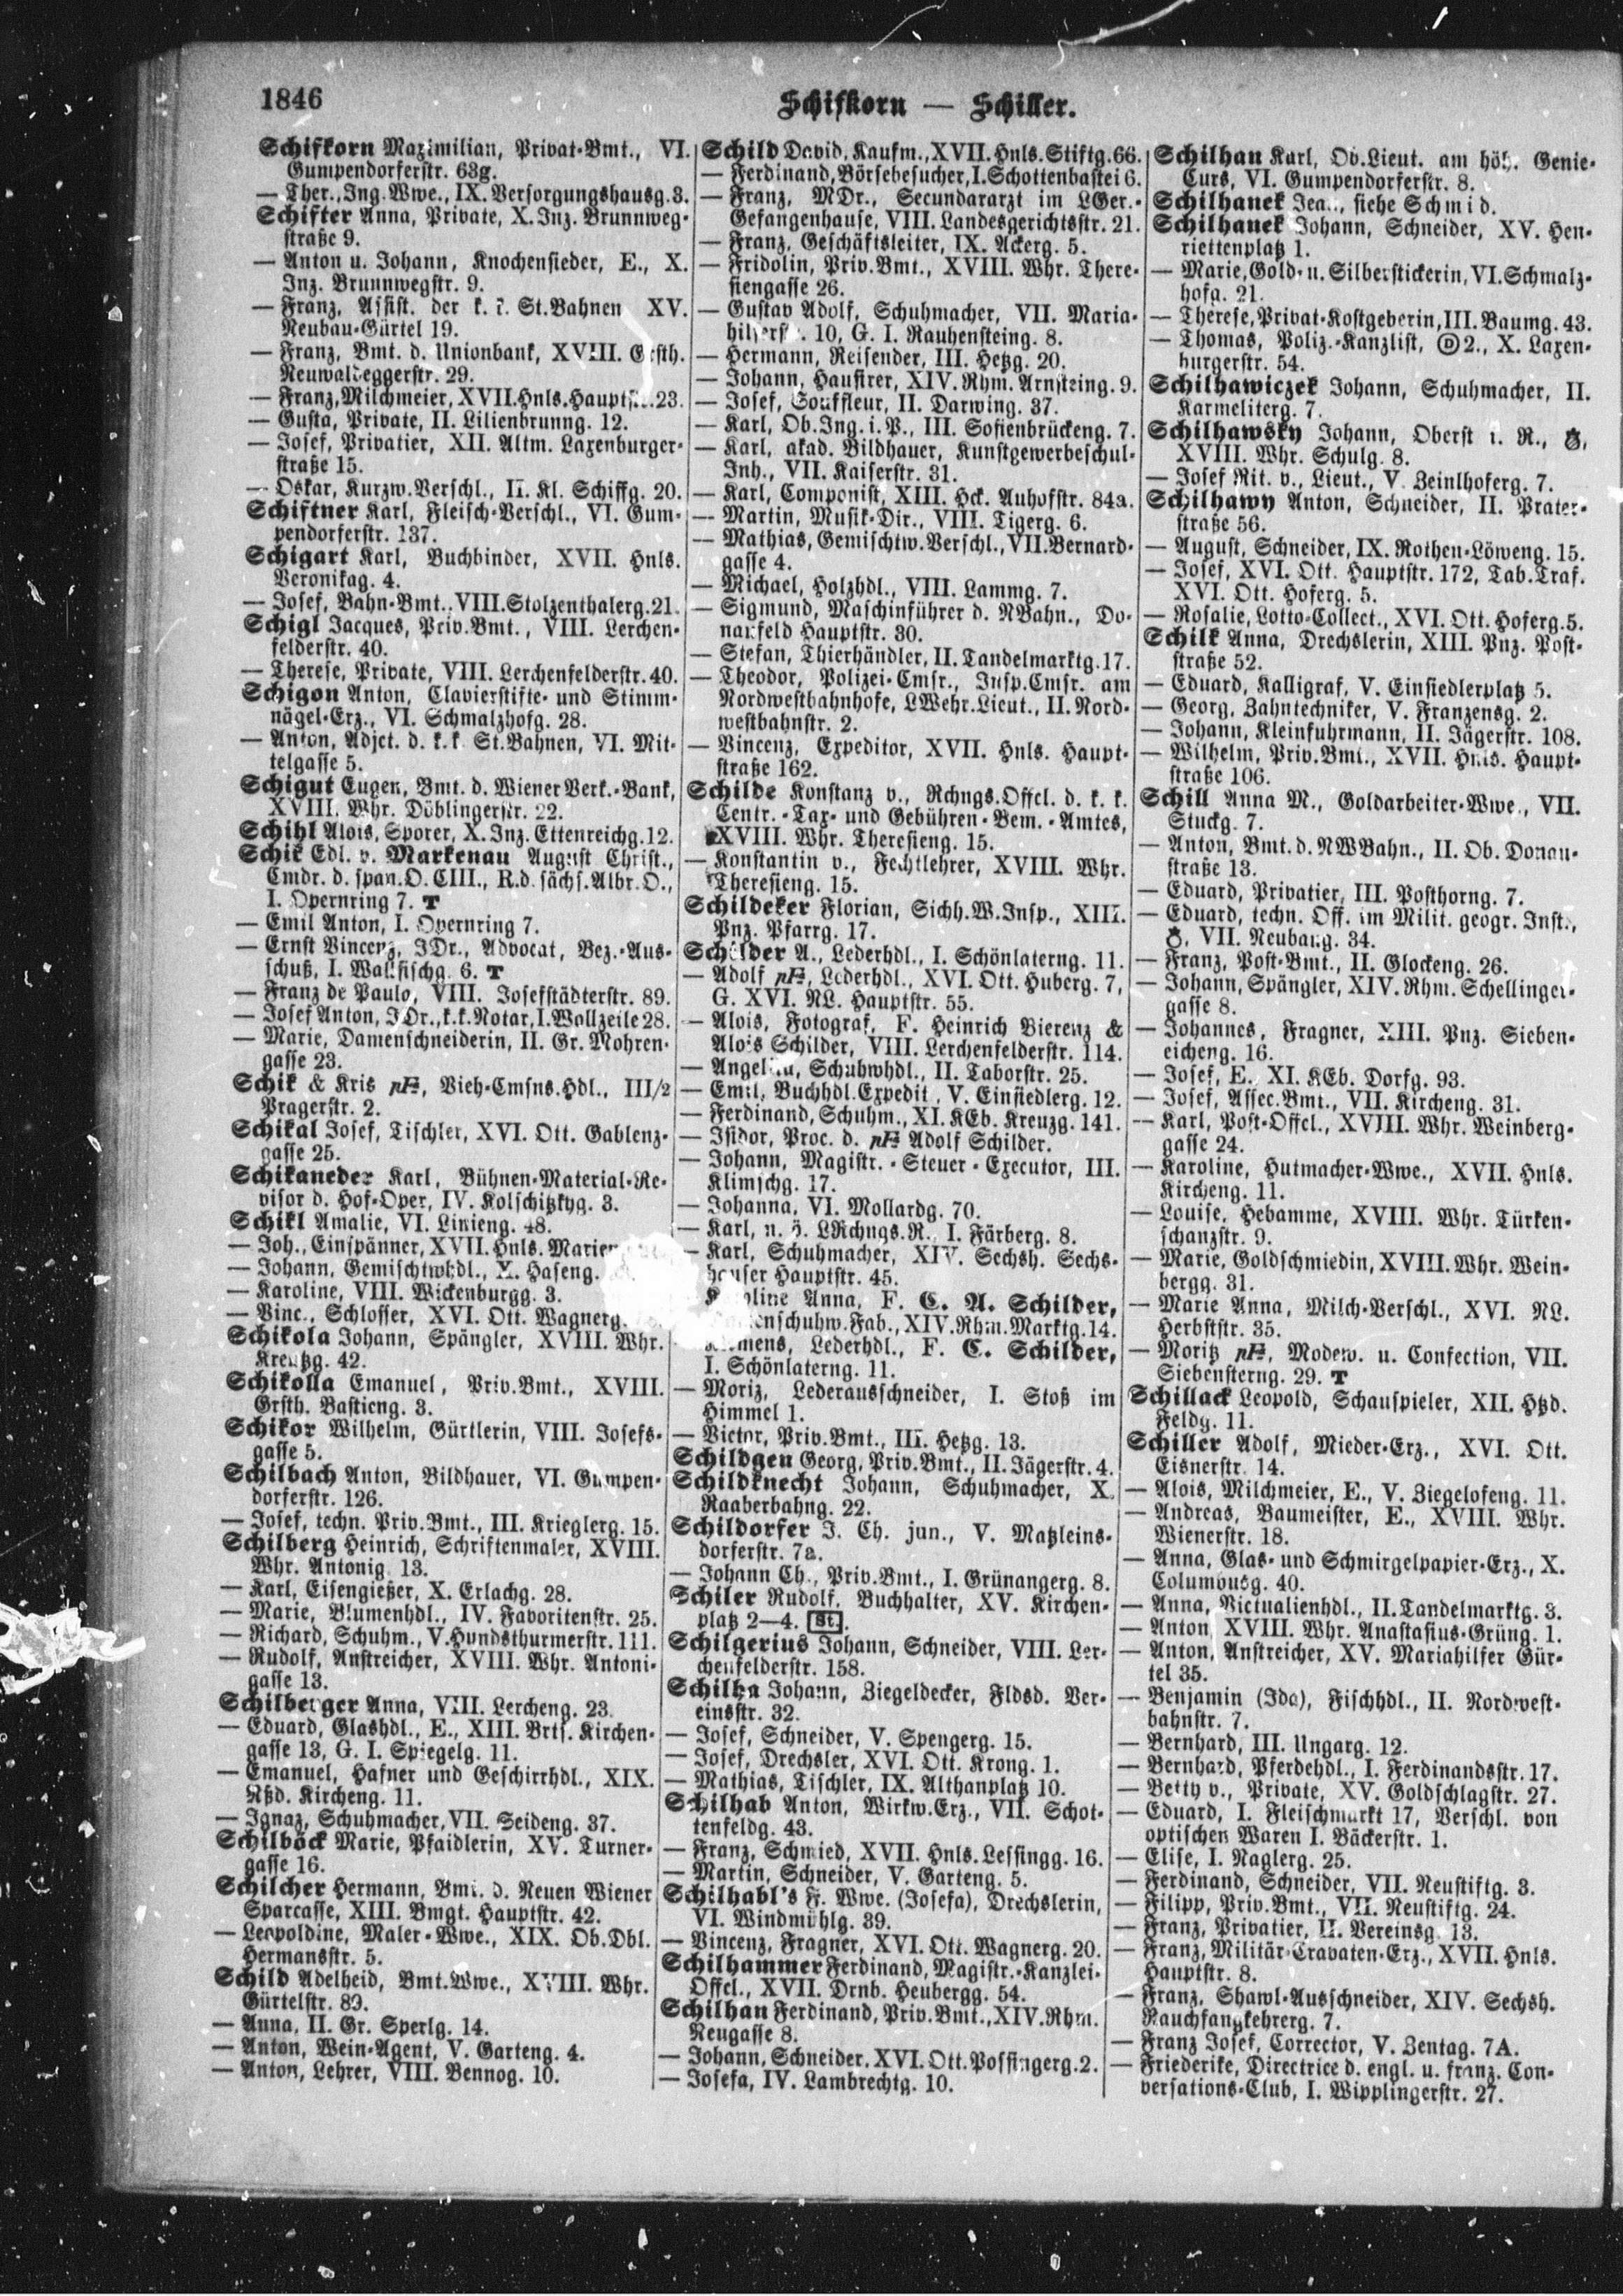 1846
Schifkorn — Schiller.
Schifkorn Maximilian, Privat-Bmt., VI.
Gumpendorferstr. 63g.
— Ther., Ing. Wwe., IX. Versorgungshausg. 3.
Schifter Anna, Private, X. Inz. Brunnweg-
straße 9.
— Anton u. Johann, Knochensieder, E., X.
Inz. Brunnwegstr. 9.
— Franz, Assist. der k. k. St.Bahnen XV.
Neubau-Gürtel 19.
— Franz, Bmt. d. Unionbank, XVIII. Grsth.
Neuwaldeggerstr. 29.
— Franz, Milchmeier, XVII. Hnls. Hauptstr. 23.
— Gusta, Private, II. Lilienbrunng. 12.
— Josef, Privatier, XII. Altm. Laxenburger-
straße 15.
— Oskar, Kurzw.Verschl., II. Kl. Schiffg. 20.
Schiftner Karl, Fleisch-Verschl., VI. Gum-
pendorferstr. 137.
Schigart Karl, Buchbinder, XVII. Hnls.
Veronikag. 4.
— Josef, Bahn-Bmt., VIII. Stolzenthalerg. 21.
Schigl Jacques, Priv.Bmt., VIII. Lerchen-
felderstr. 40.
— Therese, Private, VIII. Lerchenfelderstr. 40.
Schigon Anton, Clavierstifte- und Stimm-
nägel-Erz., VI. Schmalzhofg. 28.
— Anton, Adjct. d. k.k. St.Bahnen, VI. Mit-
telgasse 5.
Schigut Eugen, Bmt. d. Wiener Verk.-Bank,
XVIII. Whr. Döblingerstr. 22.
Schihl Alois, Sporer, X. Inz. Ettenreichg. 12.
Schik Edl. v. Markenau August Christ.,
Cmdr. d. span. O. CIII., R. d. sächs. Albr. O.,
I. Opernring 7. T
— Emil Anton, I. Opernring 7.
— Ernst Vincenz, JDr., Advocat, Bez.-Aus-
schuß, I. Wallfischg. 6. T
— Franz de Paulo, VIII. Josefstädterstr. 89.
— Josef Anton, JDr., k.k. Notar, I. Wollzeile 28.
— Marie, Damenschneiderin, II. Gr. Mohren-
gasse 23.
Schik & Kris pF, Vieh-Cmsns.Hdl., III/2
Pragerstr. 2.
Schikal Josef, Tischler, XVI. Ott. Gablenz-
gasse 25.
Schikaneder Karl, Bühnen-Material-Re-
visor d. Hof-Oper, IV. Kolschitzkyg. 3.
Schikl Amalie, VI. Linieng. 48.
— Joh., Einspänner, XVII. Hnls.
— Johann, Gemischtwhdl., X. Haseng.
— Karoline, VIII. Wickenburgg. 3.
— Vinc., Schlosser, XVI. Ott. Wagnerg.
Schikola Johann, Spängler, XVIII. Whr.
Kreutzg. 42.
Schikolla Emanuel, Priv.Bmt., XVIII.
Grsth. Bastieng. 3.
Schikor Wilhelm, Gürtlerin, VIII. Josefs-
gasse 5.
Schilbach Anton, Bildhauer, VI. Gumpen-
dorferstr. 126.
— Josef, techn. Priv.Bmt., III. Krieglerg. 15.
Schilberg Heinrich, Schriftenmaler, XVIII.
Whr. Antonig. 13.
— Karl, Eisengießer, X. Erlachg. 28.
— Marie, Blumenhdl., IV. Favoritenstr. 25.
— Richard, Schuhm., V. Hundsthurmerstr. 111.
— Rudolf, Anstreicher, XVIII. Whr. Antoni-
gasse 13.
Schilberger Anna, VIII. Lercheng. 23.
— Eduard, Glashdl., E., XIII. Brts. Kirchen-
gasse 13, G. I. Spiegelg. 11.
— Emanuel, Hafner und Geschirrhdl., XIX.
Nßd. Kircheng. 11.
— Ignaz, Schuhmacher, VII. Seideng. 37.
Schilböck Marie, Pfaidlerin, XV. Turner-
gasse 16.
Schilcher Hermann, Bmt. d. Neuen Wiener
Sparcasse, XIII. Bmgt. Hauptstr. 42.
— Leopoldine, Maler-Wwe., XIX. Ob. Dbl.
Hermansstr. 5.
Schild Adelheid, Bmt.Wwe., XVIII. Whr.
Gürtelstr. 89.
— Anna, II. Gr. Sperlg. 14.
— Anton, Wein-Agent, V. Garteng. 4.
— Anton, Lehrer, VIII. Bennog. 10.
Schild David, Kaufm., XVII. Hnls. Stiftg. 66.
— Ferdinand, Börsebesucher, I. Schottenbastei 6.
— Franz, MDr., Secundararzt im LGer.-
Gefangenhause, VIII. Landesgerichtsstr. 21.
— Franz, Geschäftsleiter, IX. Ackerg. 5.
— Fridolin, Priv.Bmt., XVIII. Whr. There-
siengasse 26.
— Gustav Adolf, Schuhmacher, VII. Maria-
hilferstr. 10, G. I. Rauhensteing. 8.
— Hermann, Reisender, III. Hetzg. 20.
— Johann, Hausirer, XIV. Rhm. Arnsteing. 9.
— Josef, Souffleur, II. Darwing. 37.
— Karl, Ob.Ing. i. P., III. Sofienbrückeng. 7.
— Karl, akad. Bildhauer, Kunstgewerbeschul-
Inh., VII. Kaiserstr. 31.
— Karl, Componist, XIII. Hck. Auhofstr. 84a.
— Martin, Musik-Dir., VIII. Tigerg. 6.
— Mathias, Gemischtw.Verschl., VII. Bernard-
gasse 4.
— Michael, Holzhdl., VIII. Lammg. 7.
— Sigmund, Maschinführer d. NBahn., Do-
naufeld Hauptstr. 30.
— Stefan, Thierhändler, II. Tandelmarktg. 17.
— Theodor, Polizei-Cmsr., Insp.Cmsr. am
Nordwestbahnhofe, LWehr.Lieut., II. Nord-
westbahnstr. 2.
— Vincenz, Expeditor, XVII. Hnls. Haupt-
straße 162.
Schilde Konstanz v., Rchngs.Offcl. d. k. k.
Centr.-Tax- und Gebühren-Bem.-Amtes,
XVIII. Whr. Theresieng. 15.
— Konstantin v., Fechtlehrer, XVIII. Whr.
Theresieng. 15.
Schildeker Florian, Sichh.W.Insp., XIII.
Pnz. Pfarrg. 17.
Schilder A., Lederhdl., I. Schönlaterng. 11.
— Adolf pF, Lederhdl., XVI. Ott. Huberg. 7,
G. XVI. NL. Hauptstr. 55.
— Alois, Fotograf, F. Heinrich Bierenz &
Alois Schilder, VIII. Lerchenfelderstr. 114.
— Angelika, Schuhwhdl., II. Taborstr. 25.
— Emil, Buchhdl.Expedit, V. Einsiedlerg. 12.
— Ferdinand, Schuhm., XI. KEb. Kreuzg. 141.
— Isidor, Proc. d. pF Adolf Schilder.
— Johann, Magistr.-Steuer-Executor, III.
Klimschg. 17.
— Johanna, VI. Mollardg. 70.
— Karl, n. ö. LRchngs.R., I. Färberg. 8.
— Karl, Schuhmacher, XIV. Sechsh. Sechs-
hauser Hauptstr. 45.
Karoline Anna, F. C. A. Schilder,
XIV. Rhm. Marktg. 14.
Klemens, Lederhdl., F. C. Schilder,
I. Schönlaterng. 11.
— Moriz, Lederausschneider, I. Stoß im
Himmel 1.
— Victor, Priv.Bmt., III. Hetzg. 13.
Schildgen Georg, Priv.Bmt., II. Jägerstr. 4.
Schildknecht Johann, Schuhmacher, X.
Raaberbahng. 22.
Schildorfer J. Ch. jun., V. Matzleins-
dorferstr. 7a.
— Johann Ch., Priv.Bmt., I. Grünangerg. 8.
Schiler Rudolf, Buchhalter, XV. Kirchen-
platz 2—4. St.
Schilgerius Johann, Schneider, VIII. Ler-
chenfelderstr. 158.
Schilha Johann, Ziegeldecker, Fldsd. Ver-
einsstr. 32.
— Josef, Schneider, V. Spengerg. 15.
— Josef, Drechsler, XVI. Ott. Krong. 1.
— Mathias, Tischler, IX. Althanplatz 10.
Schilhab Anton, Wirkw.Erz., VII. Schot-
tenfeldg. 43.
— Franz, Schmied, XVII. Hnls. Lessingg. 16.
— Martin, Schneider, V. Garteng. 5.
Schilhabl's F. Wwe. (Josefa), Drechslerin,
VI. Windmühlg. 39.
— Vincenz, Fragner, XVI. Ott. Wagnerg. 20.
Schilhammer Ferdinand, Magistr.-Kanzlei-
Offcl., XVII. Drnb. Heubergg. 54.
Schilhan Ferdinand, Priv.Bmt., XIV. Rhm.
Neugasse 8.
— Johann, Schneider, XVI. Ott. Possingerg. 2.
— Josefa, IV. Lambrechtg. 10.
Schilhan Karl, Ob.Lieut. am höh. Genie-
Curs, VI. Gumpendorferstr. 8.
Schilhanek Jean, siehe Schmid.
Schilhanek Johann, Schneider, XV. Hen-
riettenplatz 1.
— Marie, Gold- u. Silberstickerin, VI. Schmalz-
hofg. 21.
— Therese, Privat-Kostgeberin, III. Baumg. 43.
— Thomas, Poliz.-Kanzlist, Ⓓ 2., X. Laxen-
burgerstr. 54.
Schilhawiczek Johann, Schuhmacher, II.
Karmeliterg. 7.
Schilhawsky Johann, Oberst i. R.,
XVIII. Whr. Schulg. 8.
— Josef Rit. v., Lieut., V. Zeinlhoferg. 7.
Schilhawy Anton, Schneider, II. Prater-
straße 56.
— August, Schneider, IX. Rothen-Löweng. 15.
— Josef, XVI. Ott. Hauptstr. 172, Tab.Traf.
XVI. Ott. Hoferg. 5.
— Rosalie, Lotto-Collect., XVI. Ott. Hoferg. 5.
Schilk Anna, Drechslerin, XIII. Pnz. Post-
straße 52.
— Eduard, Kalligraf, V. Einsiedlerplatz 5.
— Georg, Zahntechniker, V. Franzensg. 2.
— Johann, Kleinfuhrmann, II. Jägerstr. 108.
— Wilhelm, Priv.Bmt., XVII. Hnls. Haupt-
straße 106.
Schill Anna M., Goldarbeiter-Wwe., VII.
Stuckg. 7.
— Anton, Bmt. d. NWBahn., II. Ob. Donau-
straße 13.
— Eduard, Privatier, III. Posthorng. 7.
— Eduard, techn. Off. im Milit. geogr. Inst.,
VII. Neubaug. 34.
— Franz, Post-Bmt., II. Glockeng. 26.
— Johann, Spängler, XIV. Rhm. Schellinger-
gasse 8.
— Johannes, Fragner, XIII. Pnz. Sieben-
eicheng. 16.
— Josef, E., XI. KEb. Dorfg. 93.
— Josef, Assec.Bmt., VII. Kircheng. 31.
— Karl, Post-Offcl., XVIII. Whr. Weinberg-
gasse 24.
— Karoline, Hutmacher-Wwe., XVII. Hnls.
Kircheng. 11.
— Louise, Hebamme, XVIII. Whr. Türken-
schanzstr. 9.
— Marie, Goldschmiedin, XVIII. Whr. Wein-
bergg. 31.
— Marie Anna, Milch-Verschl., XVI. NL.
Herbststr. 35.
— Moritz pF, Modew. u. Confection, VII.
Siebensterng. 29. T
Schillack Leopold, Schauspieler, XII. Htzd.
Feldg. 11.
Schiller Adolf, Mieder-Erz., XVI. Ott.
Eisnerstr. 14.
— Alois, Milchmeier, E., V. Ziegelofeng. 11.
— Andreas, Baumeister, E., XVIII. Whr.
Wienerstr. 18.
— Anna, Glas- und Schmirgelpapier-Erz., X.
Columbusg. 40.
— Anna, Victualienhdl., II. Tandelmarktg. 3.
— Anton, XVIII. Whr. Anastasius-Grüng. 1.
— Anton, Anstreicher, XV. Mariahilfer Gür-
tel 35.
— Benjamin (Ida), Fischhdl., II. Nordwest-
bahnstr. 7.
— Bernhard, III. Ungarg. 12.
— Bernhard, Pferdehdl., I. Ferdinandsstr. 17.
— Betty v., Private, XV. Goldschlagstr. 27.
— Eduard, I. Fleischmarkt 17, Verschl. von
optischen Waren I. Bäckerstr. 1.
— Elise, I. Naglerg. 25.
— Ferdinand, Schneider, VII. Neustiftg. 3.
— Filipp, Priv.Bmt., VII. Neustiftg. 24.
— Franz, Privatier, II. Vereinsg. 13.
— Franz, Militär-Cravaten-Erz., XVII. Hnls.
Hauptstr. 8.
— Franz, Shawl-Ausschneider, XIV. Sechsh.
Rauchfangkehrerg. 7.
— Franz Josef, Corrector, V. Zentag. 7A.
— Friederike, Directrice d. engl. u. franz. Con-
versations-Club, I. Wipplingerstr. 27.